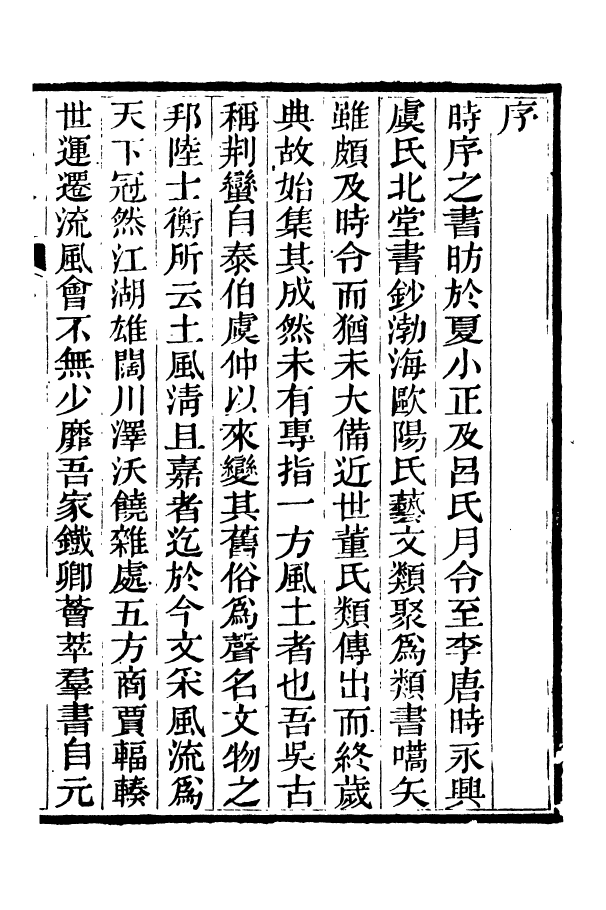 序
時序之書昉於夏小正及呂氏月令至李唐時永興
虞氏北堂書鈔渤海歐陽氏藝文類聚爲類書嚆矢
雖頗及時令而猶未大備近世董氏類傳出而終歲
典故始集其成然未有專指一方風土者也吾吳古
稱荆蠻自泰伯虞仲以來變其舊俗爲聲名文物之
邦陸士衡所云土風淸且嘉者迄於今文采風流爲
天下冠然江湖雄闊川澤沃饒雜處五方商賈輻輳
世運遷流風會不無少靡吾家鐵卿薈萃羣書自元